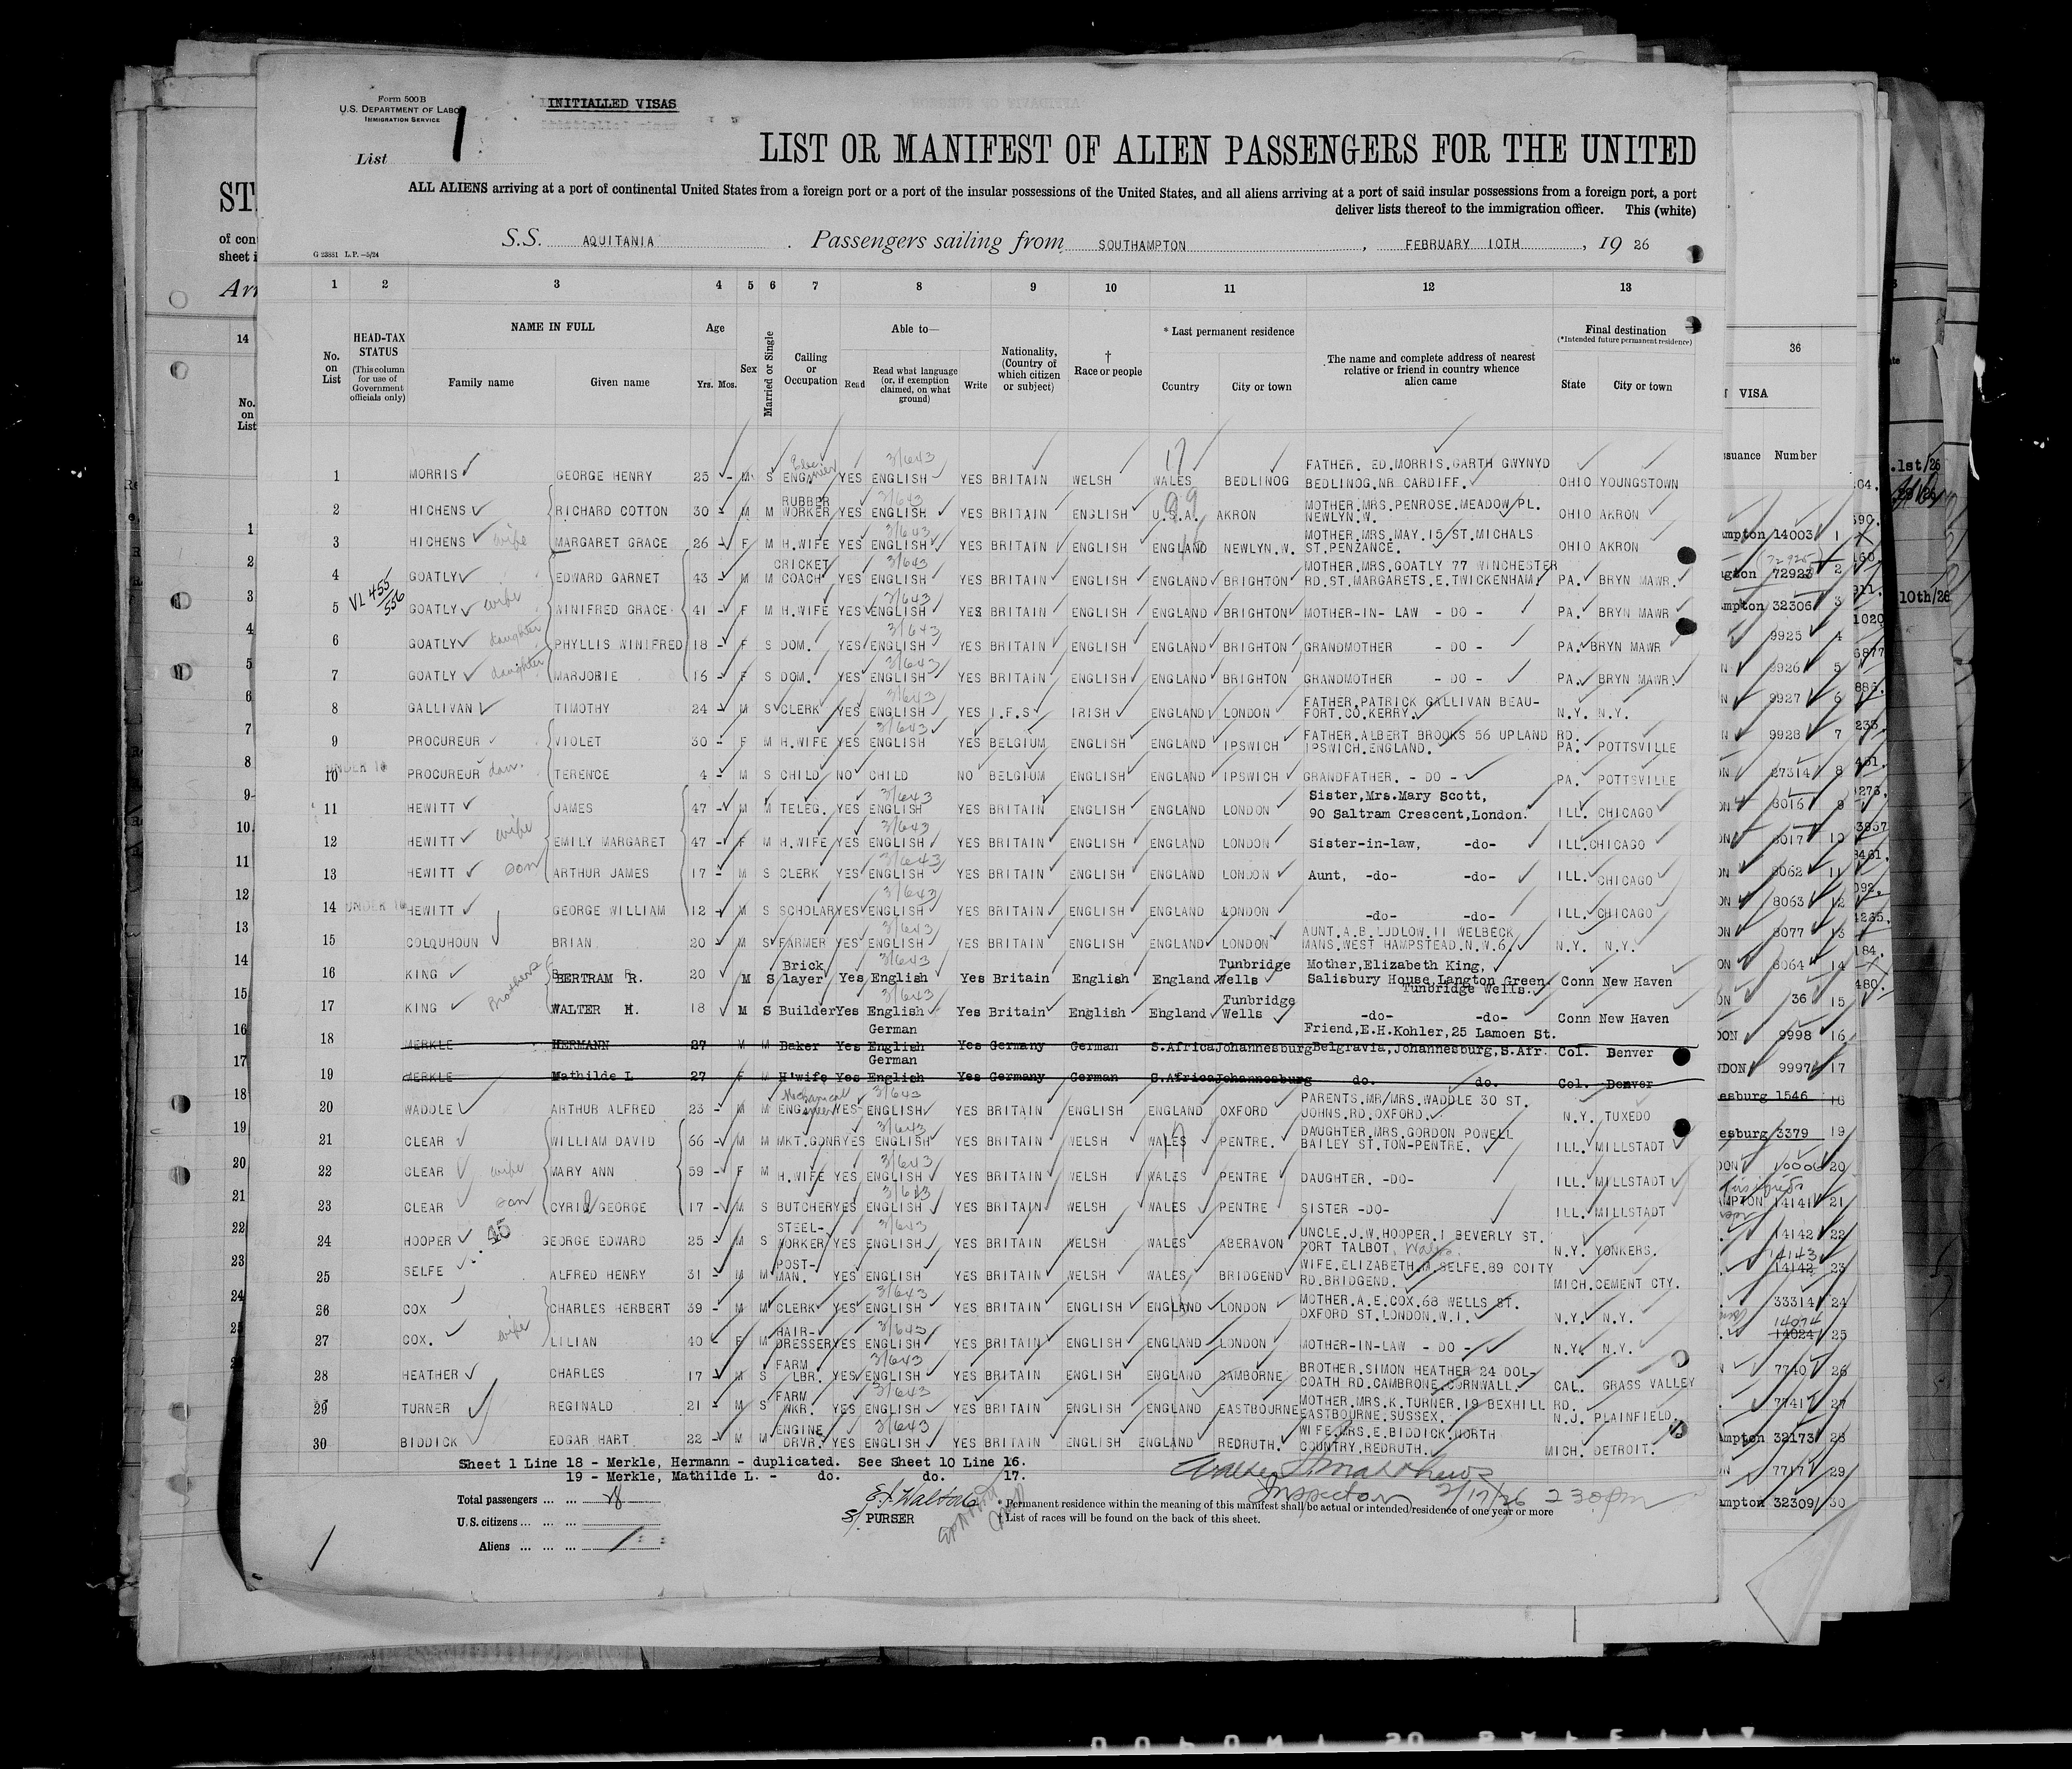 Form 500 B
U.S. DEPARTMENT OF LABOR
IMMIGRATION SERVICE
INITIALLED VISAS
List 1
LIST OR MANIFEST OF ALIEN PASSENGERS FOR THE UNITED
ALL ALIENS arriving at a port of continental United States from a foreign port or a port of the insular possessions of the United States, and all aliens arriving at a port of said insular possessions from a foreign port, a port
deliver lists thereof to the immigration officer. This (white)
S.S. AQUITANIA. Passengers sailing from SOUTHAMPTON, FEBRUARY 10TH, 19 26
G 23881 L.P.—5/24
1 2 3 4 5 6 7 8 9 10 11 12 13
No. on List
HEAD-TAX STATUS (This column for use of Government officials only)
NAME IN FULL
Family name Given name
Age Yrs. Mos.
Sex
Married or Single
Calling or Occupation
Able to—
Read Read what language (or, if exemption claimed, on what ground) Write
Nationality, (Country of which citizen or subject)
† Race or people
* Last permanent residence
Country City or town
The name and complete address of nearest relative or friend in country whence alien came
Final destination (*Intended future permanent residence)
State City or town
1 MORRIS GEORGE HENRY 25 - M S ENG YES ENGLISH 3/643 YES BRITAIN WELSH WALES BEDLINOG FATHER. ED.MORRIS.GARTH GWYNYD BEDLINOG.NR CARDIFF. OHIO YOUNGSTOWN
2 HICHENS RICHARD COTTON 30 - M M RUBBER WORKER YES ENGLISH 3/643 YES BRITAIN ENGLISH U.S.A. AKRON MOTHER.MRS.PENROSE.MEADOW PL. NEWLYN.W. OHIO AKRON
3 HICHENS wife MARGARET GRACE 26 - F M H.WIFE YES ENGLISH 3/643 YES BRITAIN ENGLISH ENGLAND NEWLYN.W. MOTHER.MRS.MAY.15 ST.MICHALS ST.PENZANCE. OHIO AKRON
4 GOATLY EDWARD GARNET 43 - M M CRICKET COACH YES ENGLISH 3/643 YES BRITAIN ENGLISH ENGLAND BRIGHTON MOTHER.MRS.GOATLY 77 WINCHESTER RD.ST.MARGARETS.E.TWICKENHAM PA. BRYN MAWR.
VL 455/556
5 GOATLY wife WINIFRED GRACE 41 - F M H.WIFE YES ENGLISH 3/643 YES BRITAIN ENGLISH ENGLAND BRIGHTON MOTHER-IN- LAW - DO - PA. BRYN MAWR
6 GOATLY daughter PHYLLIS WINIFRED 18 - F S DOM. YES ENGLISH 3/643 YES BRITAIN ENGLISH ENGLAND BRIGHTON GRANDMOTHER - DO - PA. BRYN MAWR
7 GOATLY daughter MARJORIE 16 - F S DOM. YES ENGLISH 3/643 YES BRITAIN ENGLISH ENGLAND BRIGHTON GRANDMOTHER - DO - PA. BRYN MAWR.
8 GALLIVAN TIMOTHY 24 - M S CLERK YES ENGLISH 3/643 YES I.F.S IRISH ENGLAND LONDON FATHER.PATRICK GALLIVAN BEAU- FORT.CO.KERRY. N.Y. N.Y.
9 PROCUREUR VIOLET 30 - F M H.WIFE YES ENGLISH 3/643 YES BELGIUM ENGLISH ENGLAND IPSWICH FATHER.ALBERT BROOKS 56 UPLAND RD. IPSWICH.ENGLAND. PA. POTTSVILLE
UNDER 16
10 PROCUREUR TERENCE 4 - M S CHILD NO CHILD NO BELGIUM ENGLISH ENGLAND IPSWICH GRANDFATHER. - DO - PA. POTTSVILLE
11 HEWITT JAMES 47 - M M TELEG. YES ENGLISH 3/643 YES BRITAIN ENGLISH ENGLAND LONDON Sister,Mrs.Mary Scott, 90 Saltram Crescent,London. ILL. CHICAGO
12 HEWITT wife EMILY MARGARET 47 - F M H.WIFE YES ENGLISH 3/643 YES BRITAIN ENGLISH ENGLAND LONDON Sister-in-law, -do- ILL. CHICAGO
13 HEWITT son ARTHUR JAMES 17 - M S CLERK YES ENGLISH 3/643 YES BRITAIN ENGLISH ENGLAND LONDON Aunt, -do- -do- ILL. CHICAGO
14 UNDER 16 HEWITT GEORGE WILLIAM 12 - M S SCHOLAR YES ENGLISH 3/643 YES BRITAIN ENGLISH ENGLAND LONDON -do- -do- ILL. CHICAGO
15 COLQUHOUN BRIAN 20 - M S FARMER YES ENGLISH 3/643 YES BRITAIN ENGLISH ENGLAND LONDON AUNT.A.B.LUDLOW.11 WELBECK MANS.WEST HAMPSTEAD.N.W.6. N.Y. N.Y.
16 KING Brothers BERTRAM R. 20 M S Brick layer Yes English 3/643 Yes Britain English England Tunbridge Wells Mother,Elizabeth King, Salisbury House,Langton Green. Tunbridge Wells. Conn New Haven
17 KING WALTER H. 18 M S Builder Yes English 3/643 Yes Britain English England Tunbridge Wells -do- -do- Conn New Haven
18 MERKLE HERMANN 27 M M Baker Yes German English Yes Germany German S.Africa Johannesburg Friend,E.H.Kohler,25 Lamoen St. Belgravia,Johannesburg,S.Afr. Col. Denver
19 MERKLE Mathilde L 27 F M H'wife Yes German English Yes Germany German S.Africa Johannesburg do. do. Col. Denver
20 WADDLE ARTHUR ALFRED 23 - M M Mechanical ENGineer YES ENGLISH 3/643 YES BRITAIN ENGLISH ENGLAND OXFORD PARENTS.MR/MRS.WADDLE 30 ST. JOHNS.RD.OXFORD. N.Y. TUXEDO
21 CLEAR WILLIAM DAVID 66 - M M MKT.GDNR YES ENGLISH 3/643 YES BRITAIN WELSH WALES PENTRE. DAUGHTER.MRS.GORDON POWELL BAILEY ST.TON-PENTRE. ILL. MILLSTADT
22 CLEAR wife MARY ANN 59 - F M H.WIFE YES ENGLISH 3/643 YES BRITAIN WELSH WALES PENTRE DAUGHTER. -DO- ILL. MILLSTADT
23 CLEAR son CYRIL GEORGE 17 - M S BUTCHER YES ENGLISH 3/643 YES BRITAIN WELSH WALES PENTRE SISTER -DO- ILL. MILLSTADT
24 HOOPER GEORGE EDWARD 25 - M S STEEL- WORKER YES ENGLISH 3/643 YES BRITAIN WELSH WALES ABERAVON UNCLE.J.W.HOOPER.1 BEVERLY ST. PORT TALBOT. Wales. N.Y. YONKERS.
25 SELFE ALFRED HENRY 31 - M M POST- MAN. YES ENGLISH YES BRITAIN WELSH WALES BRIDGEND WIFE.ELIZABETH.M.SELFE.89 COITY RD.BRIDGEND. MICH. CEMENT CTY.
26 COX CHARLES HERBERT 39 - M M CLERK YES ENGLISH 3/643 YES BRITAIN ENGLISH ENGLAND LONDON MOTHER.A.E.COX.68 WELLS ST. OXFORD ST.LONDON.W.1. N.Y. N.Y.
27 COX. wife LILIAN 40 - F M HAIR- DRESSER YES ENGLISH 3/643 YES BRITAIN ENGLISH ENGLAND LONDON MOTHER-IN-LAW - DO - N.Y. N.Y.
28 HEATHER CHARLES 17 - M S FARM LBR. YES ENGLISH 3/643 YES BRITAIN ENGLISH ENGLAND CAMBORNE BROTHER.SIMON HEATHER 24 DOL- COATH RD.CAMBRONE.CORNWALL. CAL. GRASS VALLEY
29 TURNER REGINALD 21 - M S FARM WKR. YES ENGLISH 3/643 YES BRITAIN ENGLISH ENGLAND EASTBOURNE MOTHER.MRS.K.TURNER.19 BEXHILL RD. EASTBOURNE.SUSSEX. N.J. PLAINFIELD.
30 BIDDICK EDGAR HART 22 - M M ENGINE DRVR. YES ENGLISH 3/643 YES BRITAIN ENGLISH ENGLAND REDRUTH. WIFE.MRS.E.BIDDICK.NORTH COUNTRY.REDRUTH. MICH. DETROIT.
Sheet 1 Line 18 - Merkle, Hermann - duplicated. See Sheet 10 Line 16.
19 - Merkle, Mathilde L. - do. do. 17.
Total passengers ... ...
U.S. citizens ... ...
Aliens ... ... ...
PURSER
Inspector 2/17/26 2 30 pm
* Permanent residence within the meaning of this manifest shall be actual or intended residence of one year or more
† List of races will be found on the back of this sheet.
36
VISA
Number
14003 1
72923 2
32306 3
9925 4
9926 5
9927 6
9928 7
27314 8
8016 9
8017 10
8062 11
8063 12
8077 13
8064 14
36 15
9998 16
9997 17
1546 18
3379 19
10006 20
14141 21
14142 22
14143
14142 23
33314 24
14074
14024 25
7740 26
7741 27
32173 28
7717 29
32309 30